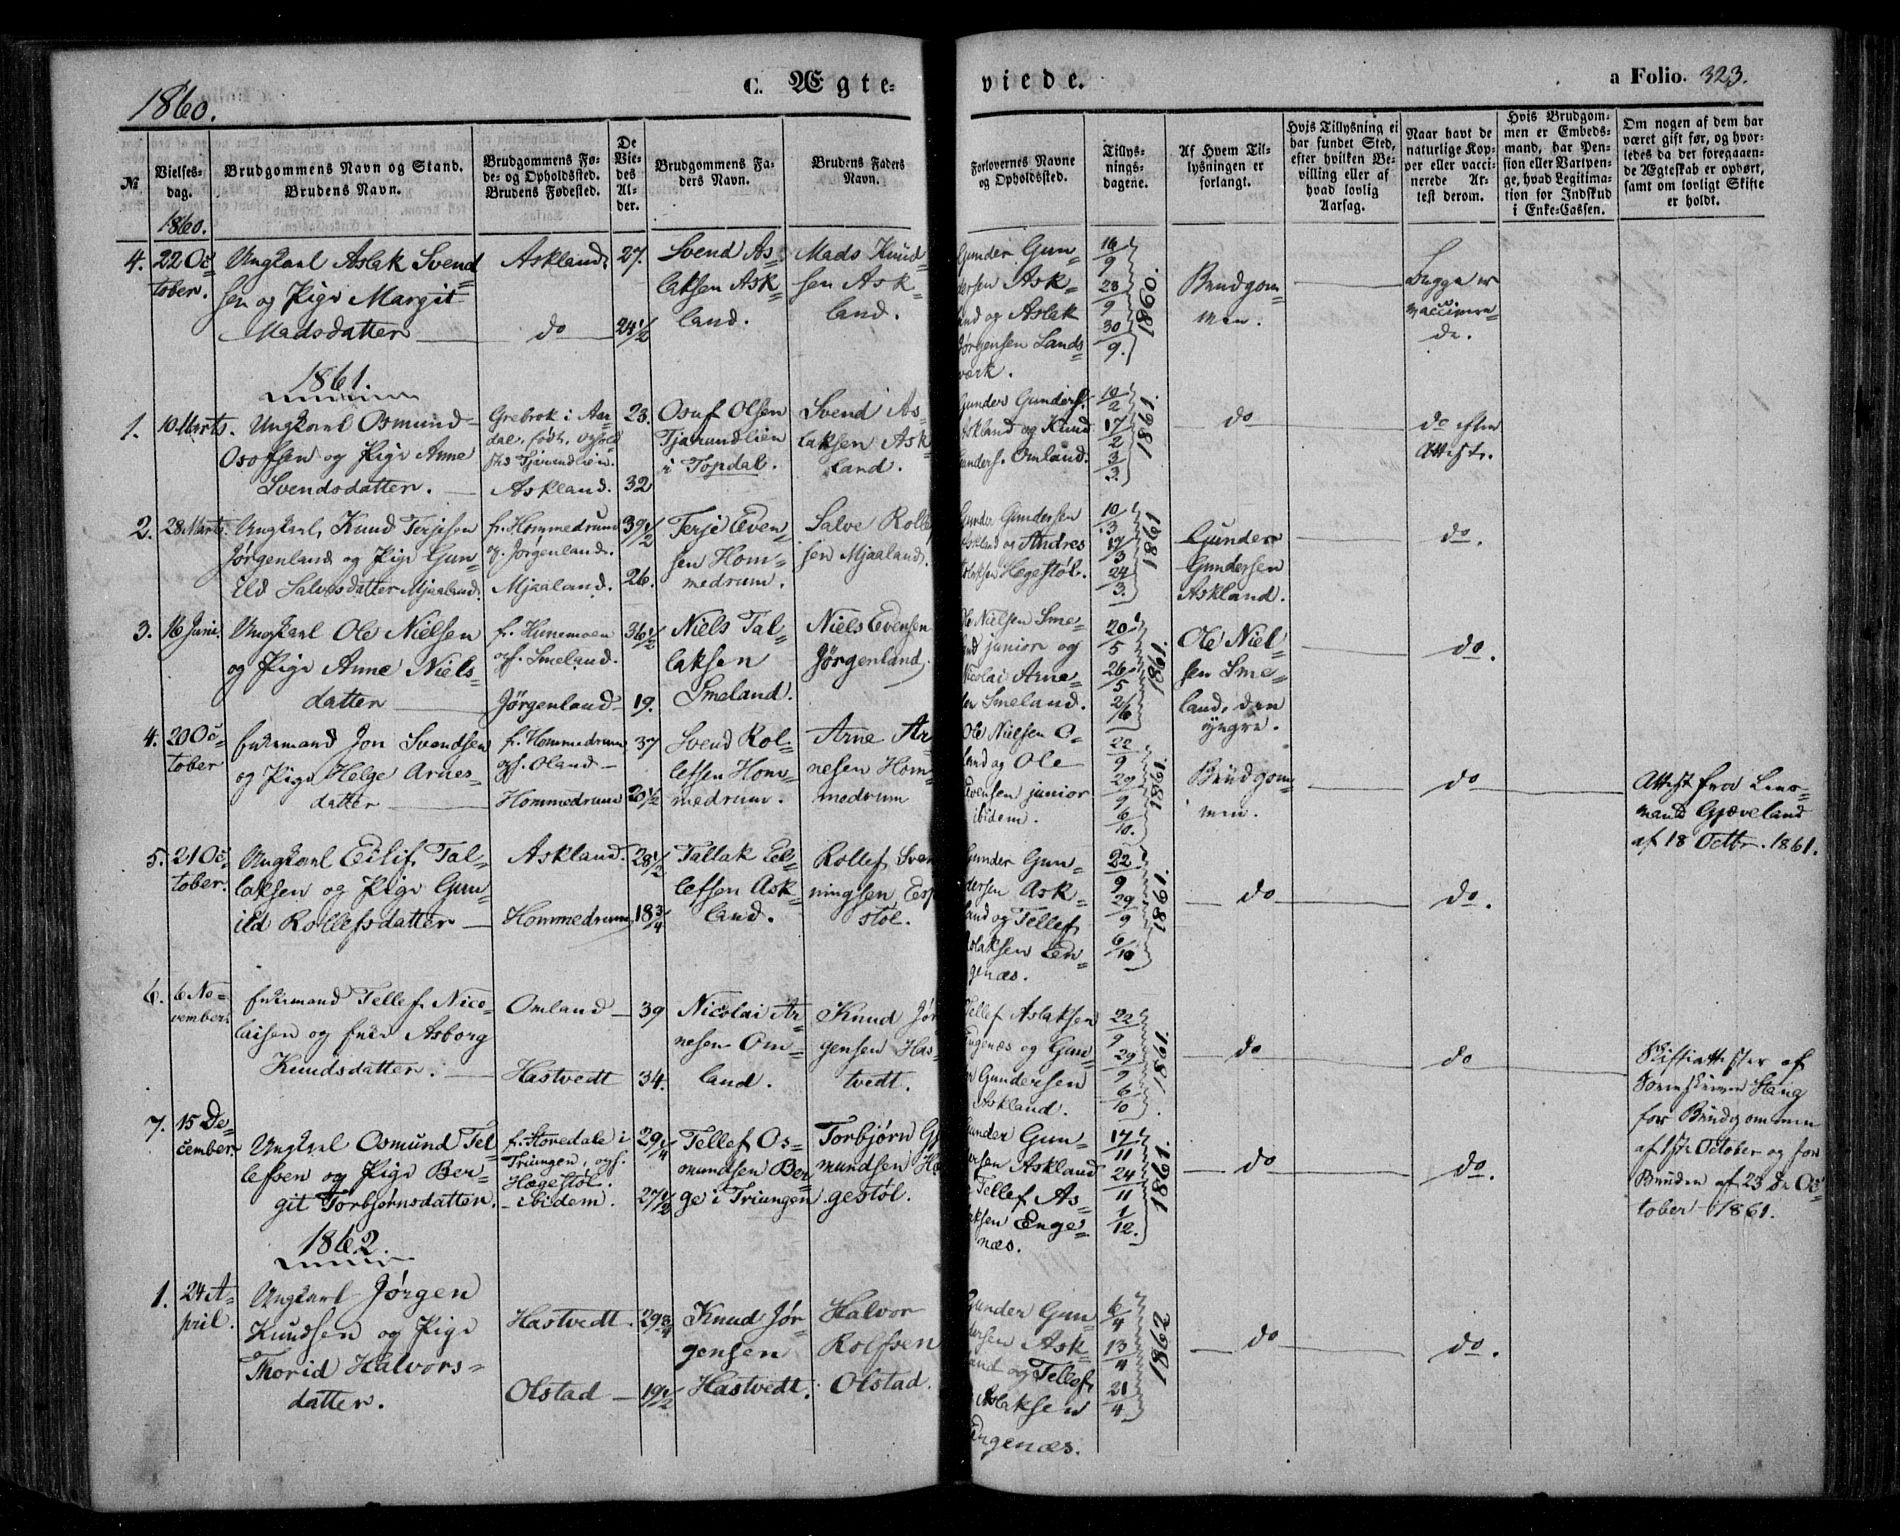 1860.
C. Ægte-
viede.
a Folio. 323.
No.
Vielses-
dag.
Brudgommens Navn og Stand.
Brudens Navn.
Brudgommens Fø-
de- og Opholdssted.
Brudens Fødested.
De
Vie-
des
Al-
der.
Brudgommens Fa-
ders Navn.
Brudens Faders
Navn.
Forlovernes Navne
og Opholdssted.
Tillys-
nings-
dagene.
Af Hvem Til-
lysningen er
forlangt.
Hvis Tillysning ei
har fundet Sted,
efter hvilken Be-
villing eller af
hvad lovlig
Aarsag.
Naar havt de
naturlige Kop-
per eller vacci-
nerede At-
test derom.
Hvis Brudgom-
men er Embeds-
mand, har Pen-
sion eller Vartpen-
ge, hvad Legitima-
tion for Indskud
i Enke-Cassen.
Om nogen af dem har
været gift før, og hvor-
ledes da det foregaaen-
de Ægteskab er ophørt,
samt om lovligt Skifte
er holdt.
1860.
4.
22 Oc-
tober.
Ungkarl Aslak Svend
sen og Pige Margit
Madsdatter
Askland.
do
27.
24 1/2
Svend As-
laksen Ask-
land.
Mads Knud-
sen Ask-
land.
Gunder Gun-
dersen Ask-
land og Aslak
Jørgensen Lands-
værk.
16/9
23/9
30/9.
1860.
Brudgom-
men.
Begge er
vaccinere-
de.
1861.
1.
10 Marts.
Ungkarl Osmund
Osofsen og Pige Anne
Svendsdatter.
Grebrok i Aar-
dal, født,
Tjarandlien.
Askland.
23.
32
Osuf Olsen
Tjarandlien
i Topdal.
Svend As-
laksen Ask-
land.
Gunder Gunders.
Askland og Knud
Gunders. Omland.
10/2
17/2
3/3.
1861.
do
do efter
Attest.
2.
28 Marts.
Ungkarl Knud Terjesen
Jørgenland og Pige Gun-
ild Salvesdatter Mjaaland.
f. Hommedrum
o. Jørgenland.
Mjaaland.
39 1/2
26.
Terje Even-
sen Hom-
medrum.
Salve Rolle
sen Mjaaland.
Gunder Gundersen
Askland og Andres
Aslaksen Hegestøl.
10/3
17/3
24/3.
1861
Gunder
Gundersen
Askland.
do.
3.
16 Juni.
Ungkarl Ole Nielsen
og Pige Anne Niels-
datter
f. Hunemoen
oph. Smeland.
Jørgenland
36 1/2
19.
Niels Tal-
laksen
Smeland.
Niels Evensen
Jørgenland.
Ole Nielsen Sme-
land junior og
Nicolai Arne-
sen Smeland.
20/5
26/5
2/6
1861.
Ole Niel-
sen Sme-
land, den
yngre.
do.
4.
20 Oc-
tober
Enkemand Jon Svendsen
og Pige Helge Arnes-
datter
f. Hommedrum
oph. Oland
Hommedrum
37
20 1/2
Svend Rol-
lefsen Hom-
medrum.
Arne Ar-
nesen Hom-
medrum
Ole Nielsen O-
land og Ole
Evensen junior
ibidem.
22/9
29/9
6/10.
1861.
Brudgom-
men.
do
Attest fra Lens-
mand Gjæveland
af 18 Octbr. 1861.
5.
21 Oc-
tober.
Ungkarl Eilif Tal-
laksen og Pige Gun-
ild Rollefsdatter
Askland.
Hommedrum
28 1/2
18 3/4
Tallak Eel-
lefsen Ask-
land.
Rollef Sven
ningsen Esp
støl.
Gunder Gun-
dersen Ask-
land og Tellef
Aslaksen En-
genæs.
22/9
29/9
6/10
1861.
do
do.
6.
6 No-
vember.
Enkemand Tellef Nico-
laisen og Enke Asborg
Knudsdatter.
Omland
Hastvedt
39
34.
Nicolai Ar-
nesen Om-
land.
Knud Jør
gensen Has-
tvedt.
Tellef Aslaksen
Engenæs og Gun-
er Gundersen
Askland.
22/9
29/9
6/10
1861.
do
do
Skifteattester af
Sorenskriver Stang
for Brudgommen
af 1ste October og for
Bruden af 23de Oc-
tober 1861.
7.
15 De-
cember.
Ungkarl Osmund Tel
lefsen og Pige Ber-
git Torbjørnsdatter.
f. Storedale i
Triungen, oph.
Hægestøl.
ibidem.
29 1/4
27 1/2
Tellef Os-
mundsen Ber-
ge i Triungen
Torbjørn G
mundsen H
gestøl.
Gunder Gun-
dersen Askland
Tellef As-
laksen Enge-
næs.
17/11
24/11
1/12.
1861.
do
do.
1862.
1.
24 A-
pril.
Ungkarl Jørgen
Knudsen og Pige
Thorid Halvors-
datter.
Hastvedt.
Olstad
29 3/4
19 1/2
Knud Jør-
gensen
Hastvedt.
Halvor
Rolfsen
Olstad.
Gunder Gun-
dersen Ask-
land og Tellef
Aslaksen
Engenæs.
6/4
13/4
21/4.
1862
do
do.